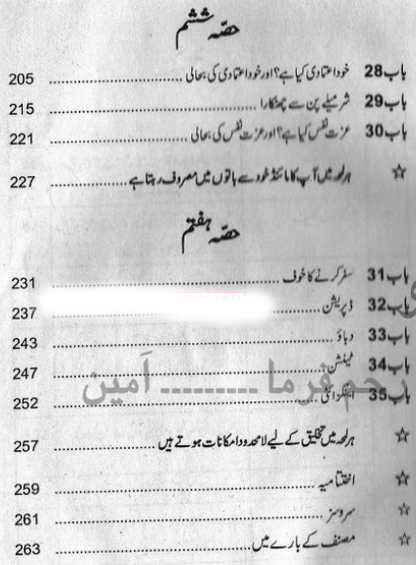 حصّہ ششم
باب 28 خود اعتمادی کیا ہے؟ اور خود اعتمادی کی بحالی ........ 205
باب 29 شرمیلے پن سے چھٹکارا ........ 215
باب 30 عزت نفس کیا ہے؟ اور عزت نفس کی بحالی ........ 221
☆ ہر لمحہ میں آپ کا مائنڈ خود سے باتوں میں مصروف رہتا ہے ........ 227
حصّہ ہفتم
باب 31 سفر کرنے کا خوف ........ 231
باب 32 ڈپریشن ........ 237
باب 33 دباؤ ........ 243
باب 34 ٹینشن ........ 247
رحم فرما ......... آمین
باب 35 ........ 252
☆ ہر لمحہ میں تخلیق کے لیے لامحدود امکانات ہوتے ہیں ........ 257
☆ اختتامیہ ........ 259
☆ سروسز ........ 261
☆ مصنف کے بارے میں ........ 263